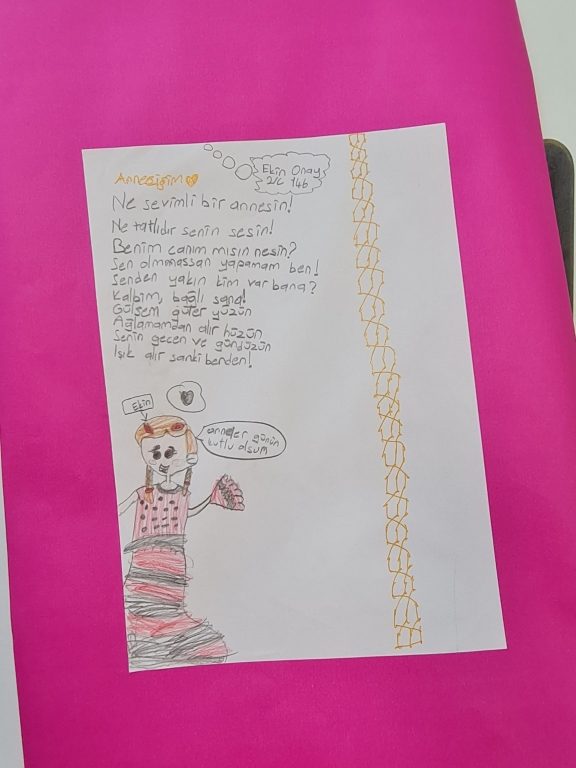 Ekin Onay
2/C 146
Anneciğim
Ne sevimli bir annesin!
Ne tatlıdır senin sesin!
Benim canım mısın nesin?
Sen olmassan yapamam ben!
Senden yakın kim var bana?
Kalbim, bağlı sana!
Gülsem güler yüzün
Ağlamamdan alır hüzün
Senin gecen ve gündüzün
Işık alır sanki benden!
Ekin
anneler günün
kutlu olsun